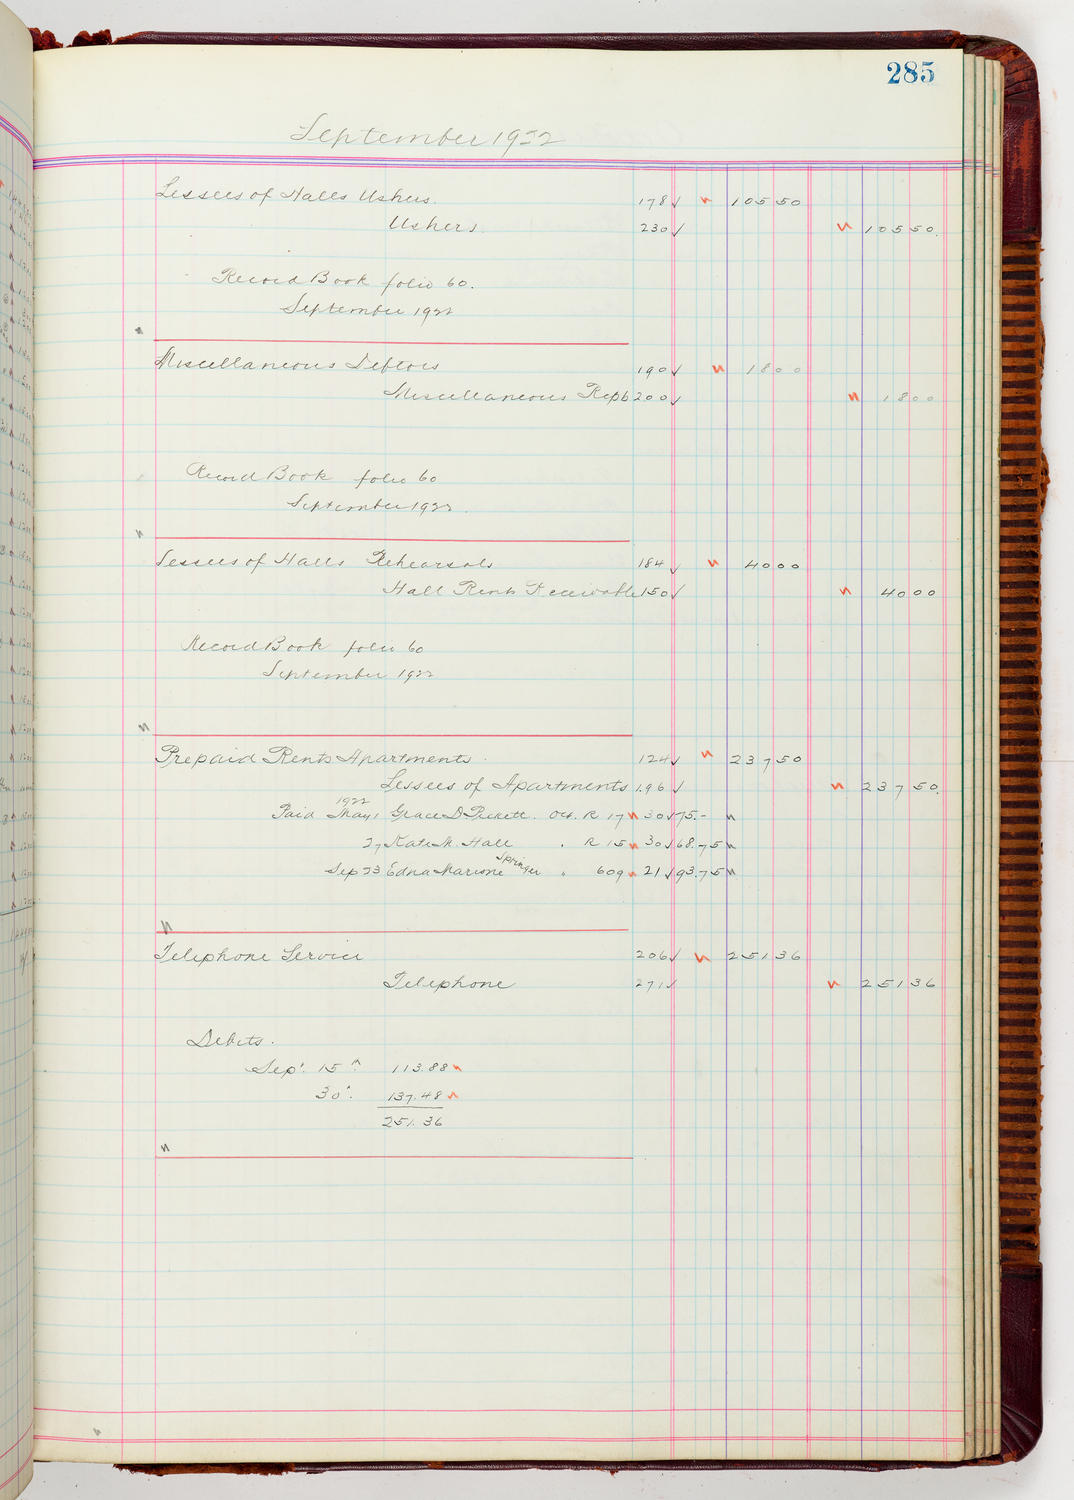 285
September 1922
Lessees of Halls Ushers. 178 ✓ 105 50
Ushers. 230 ✓ 105 50.
Record Book folio 60.
September 1922
Miscellaneous Debtors 190 ✓ 18 00
Miscellaneous Repts 200 ✓ 18 00
Record Book folio 60
September 1922.
Lessees of Halls Rehearsals 184 ✓ 40 00
Hall Rents Receivable 150 ✓ 40 00
Record Book folio 60
September 1922
Prepaid Rents Apartments. 124 ✓ 237 50
Lessees of Apartments 196 ✓ 237 50.
1922
Paid May 1 Grace D Pickett. Oct. R 17 30 ✓ 75.-
27 Kate M. Hall " R 15 30 ✓ 68.75
Sep 23 Edna Marione Springer " 609 21 ✓ 93.75
Telephone Service 206 ✓ 251 36
Telephone 271 ✓ 251 36
Debits.
Sep'. 15" 113.88
30". 137.48
251.36